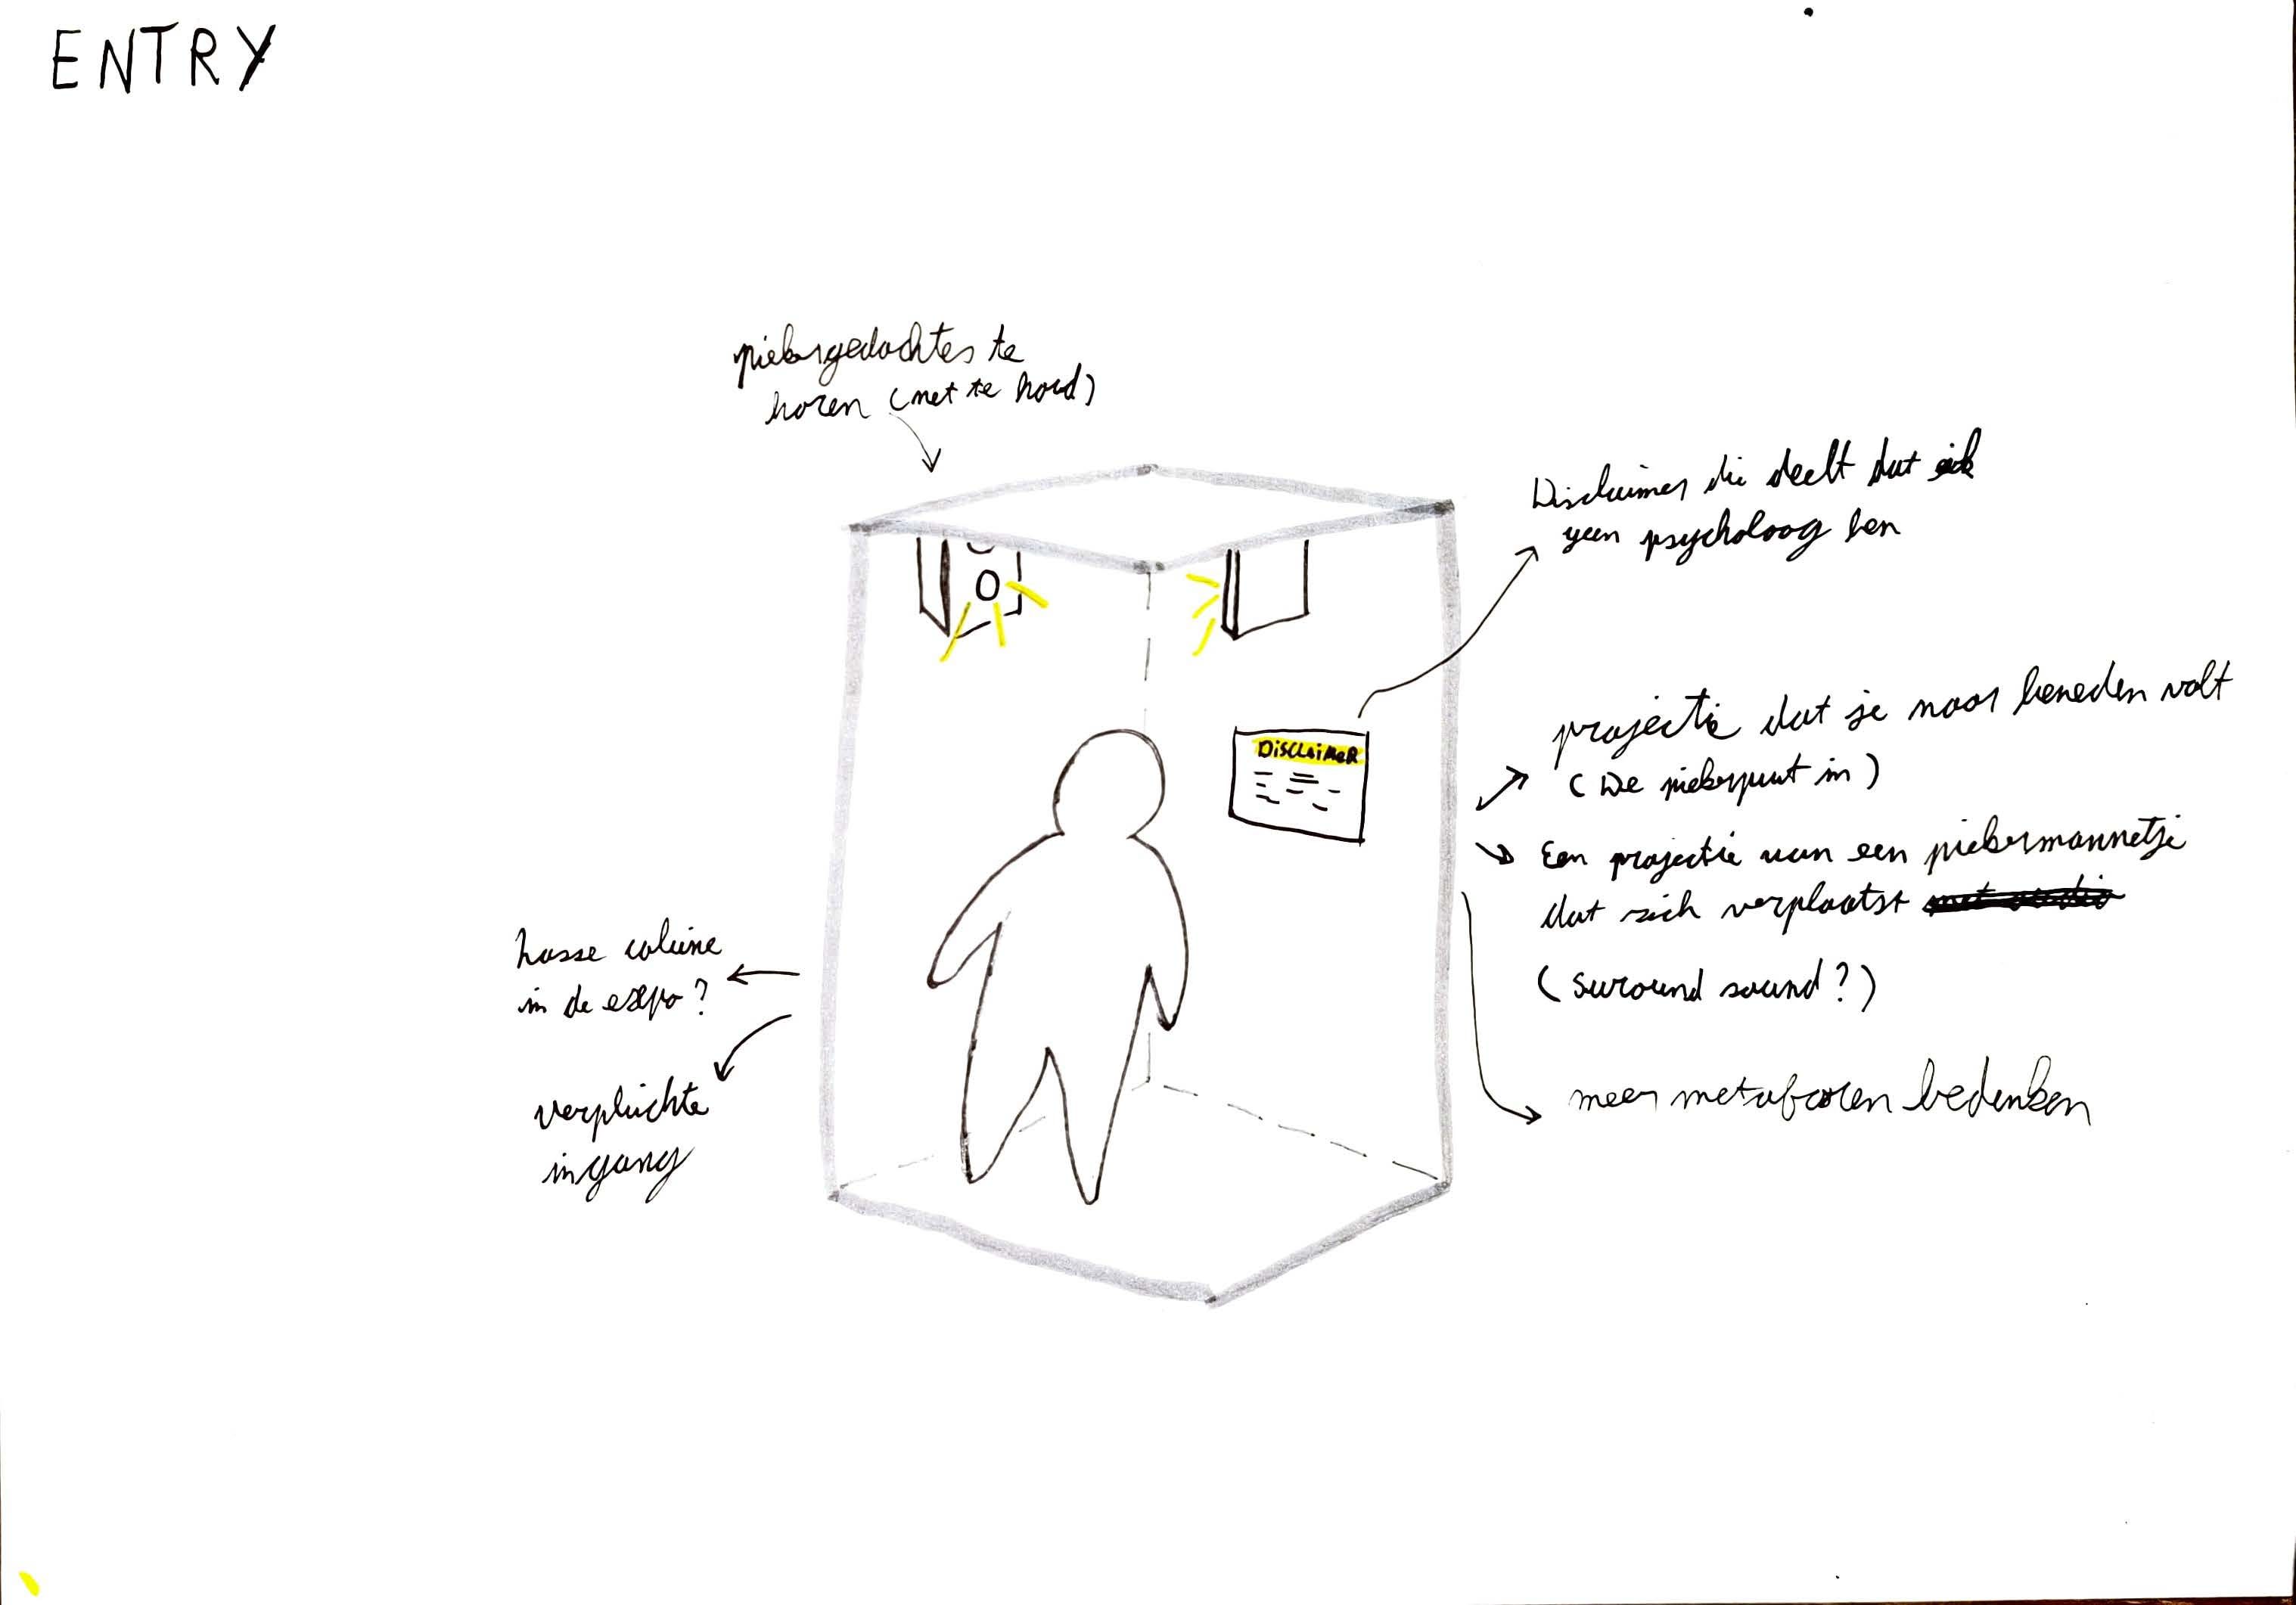 ENTRY
piekergedachtes te
horen (niet te hard)
Disclaimer die deelt dat ik
geen psycholoog ben
DISCLAIMER
projectie dat je naar beneden valt
(De piekerput in)
Een projectie van een piekermannetje
dat zich verplaatst
(Suround sound?)
losse cabine
in de expo?
verplichte
ingang
meer metaforen bedenken